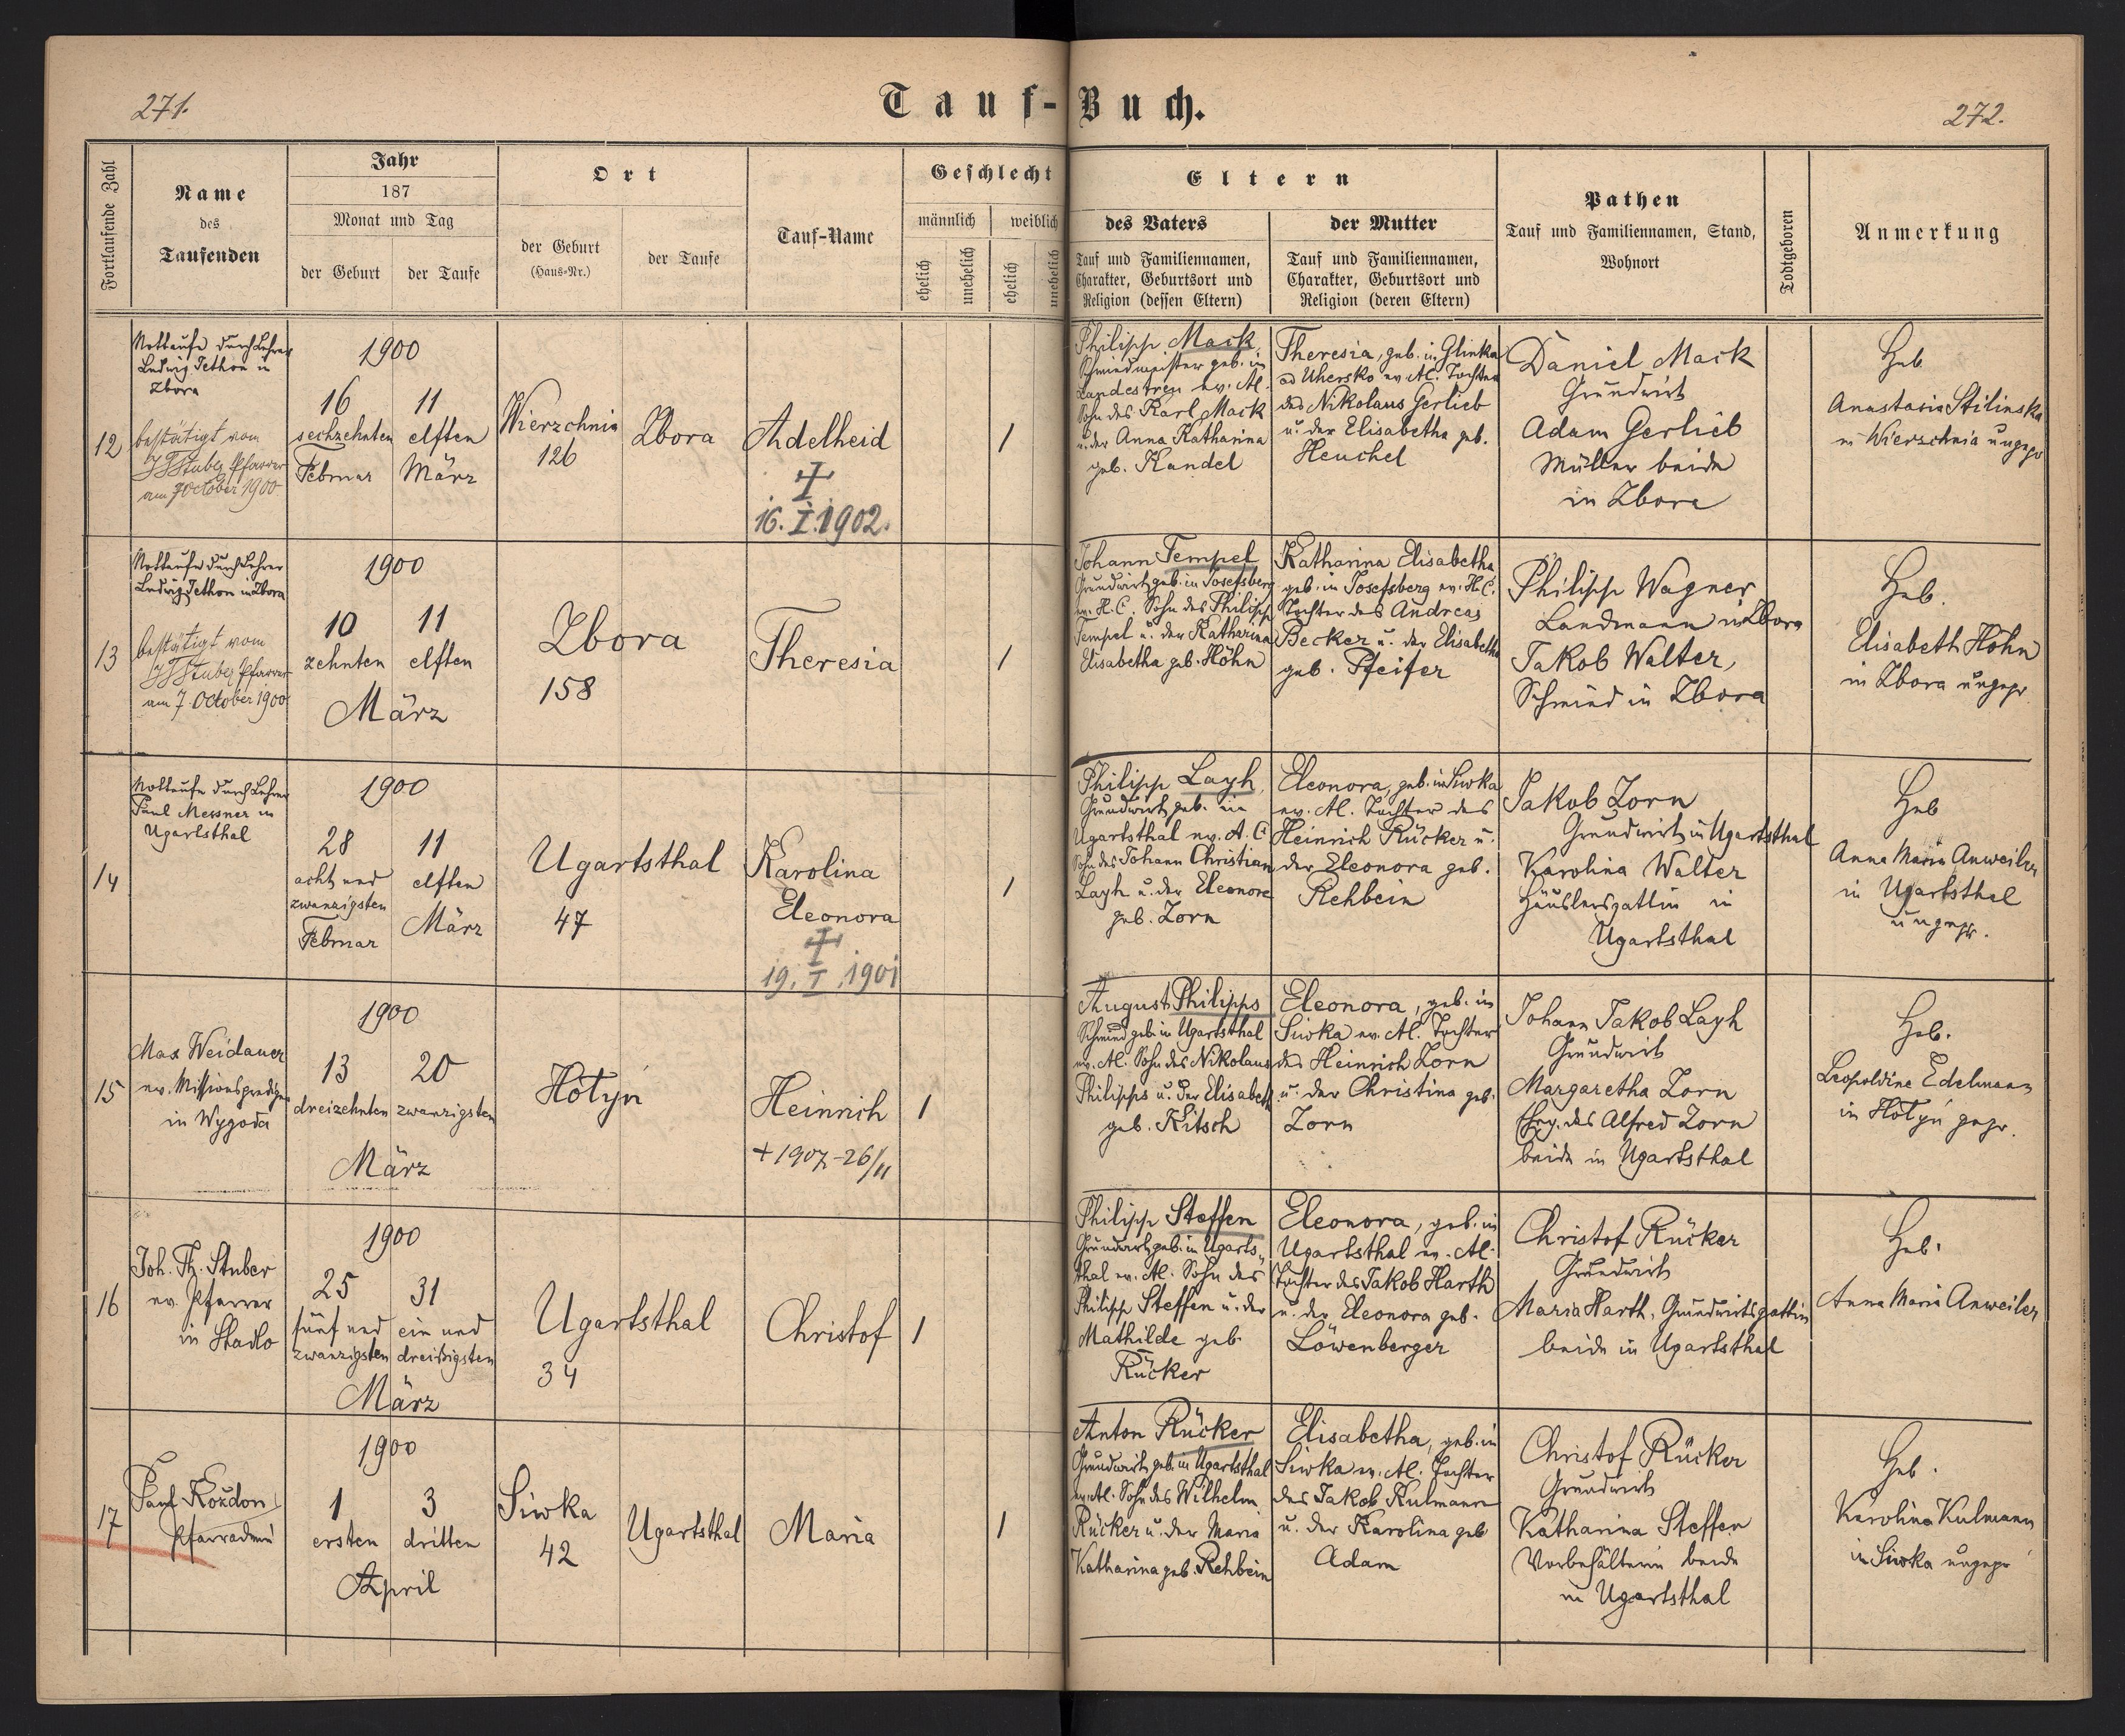 271.
Tauf-Buch.
272.
Fortlaufende Zahl
Name
des
Taufenden
Jahr
187
Monat und Tag
der Geburt
der Taufe
Ort
der Geburt
(Haus-Nr.)
der Taufe
Tauf-Name
Geschlecht
männlich
weiblich
ehelich
unehelich
ehelich
unehelich
Eltern
des Vaters
Tauf und Familiennamen,
Charakter, Geburtsort und
Religion (dessen Eltern)
der Mutter
Tauf und Familiennamen,
Charakter, Geburtsort und
Religion (deren Eltern)
Pathen
Tauf und Familiennamen, Stand,
Wohnort
Todtgeboren
Anmerkung
12
Nottaufe durch Lehrer
Ludwig Jethon in
Zbora
bestätigt vom
Pfarrer
am 7 October 1900
1900
16
sechzehnten
Februar
11
elften
März
Wierzchnia
126
Zbora
Adelheid
16. I. 1902.
1
Philipp Mack,
Schmiedmeister geb. in
Landestreu ev. AC.
Sohn des Karl Mack
u. der Anna Katharina
geb. Kandel
Theresia, geb. in Glinka
ad Uhersko ev. AC. Tochter
des Nikolaus Gerlieb
u. der Elisabetha geb.
Heuchel
Daniel Mack
Grundwirt
Adam Gerlieb
Müller beide
in Zbora
Heb.
Anastasia Stilinska
in Wierzchnia ungepr
13
Nottaufe durch Lehrer
Ludwig Jethon in Zbora
bestätigt vom
Pfarrer
am 7. October 1900
1900
10
zehnten
11
elften
März
Zbora
158
Theresia
1
Johann Tempel
Grundwirt geb. in Josefsberg
ev. H.C. Sohn des Philipp
Tempel u. der Katharina
Elisabetha geb. Höhn
Katharina Elisabetha
geb. in Josefsberg ev. H.C.
Tochter des Andreas
Becker u. der Elisabetha
geb. Pfeifer
Philipp Wagner
Landmann in Zbora
Jakob Walter,
Schmied in Zbora
Heb.
Elisabeth Höhn
in Zbora ungepr
14
Nottaufe durch Lehrer
Paul Messner in
Ugartsthal
1900
28
acht und
zwanzigsten
Februar
11
elften
März
Ugartsthal
47
Karolina
Eleonora
19. I. 1901
1
Philipp Layh,
Grundwirt geb. in
Ugartsthal ev. A.C.
Sohn des Johann Christian
Layh u. der Eleonore
geb. Zorn
Eleonora, geb. in Siwka
ev. AC. Tochter des
Heinrich Rücker u.
der Eleonora geb.
Rehbein
Jakob Zorn
Grundwirt in Ugartsthal
Karolina Walter
Häuslersgattin in
Ugartsthal
Heb
Anna Maria Anweiler
in Ugartsthal
ungepr.
15
Max Weidauer
ev. Missionsprediger
in Wygoda
1900
13
dreizehnten
20
zwanzigsten
März
Hołyń
Heinrich
+ 1907-26/11
1
August Philipps
Schmied geb. in Ugartsthal
ev. AC. Sohn des Nikolaus
Philipps u. der Elisabeth
geb. Kitsch
Eleonora, geb. in
Siwka ev. AC. Tochter
des Heinrich Zorn
u. der Christina geb.
Zorn
Johann Jakob Layh
Grundwirt
Margaretha Zorn
des Alfred Zorn
beide in Ugartsthal
Heb.
Leopoldine Edelmann
in Hołyń gepr.
16
Joh. Th. Stuber
ev. Pfarrer
in Stadlo
1900
25
fünf und
zwanzigsten
31
ein und
dreißigsten
März
Ugartsthal
34
Christof
1
Philipp Steffen
Grundwirt geb. in Ugarts-
thal ev. AC. Sohn des
Philipp Steffen u. der
Mathilde geb.
Rücker
Eleonora, geb. in
Ugartsthal ev. AC.
Tochter des Jakob Harth
u. der Eleonora geb.
Löwenberger
Christof Rücker
Grundwirt
Maria Harth, Grundwirtsgattin
beide in Ugartsthal
Heb.
Anna Maria Anweiler
17
Paul Kozdon
Pfarradmi
1900
1
ersten
3
dritten
April
Siwka
42
Ugartsthal
Maria
1
Anton Rücker
Grundwirt geb. in Ugartsthal
ev. AC. Sohn des Wilhelm
Rücker u. der Maria
Katharina geb. Rehbein
Elisabetha, geb. in
Siwka ev. AC. Tochter
des Jakob Kulmann
u. der Karolina geb
Adam
Christof Rücker
Grundwirt
Katharina Steffen
Vorbehälterin beide
in Ugartsthal
Heb.
Karolina Kulmann
in Siwka ungepr